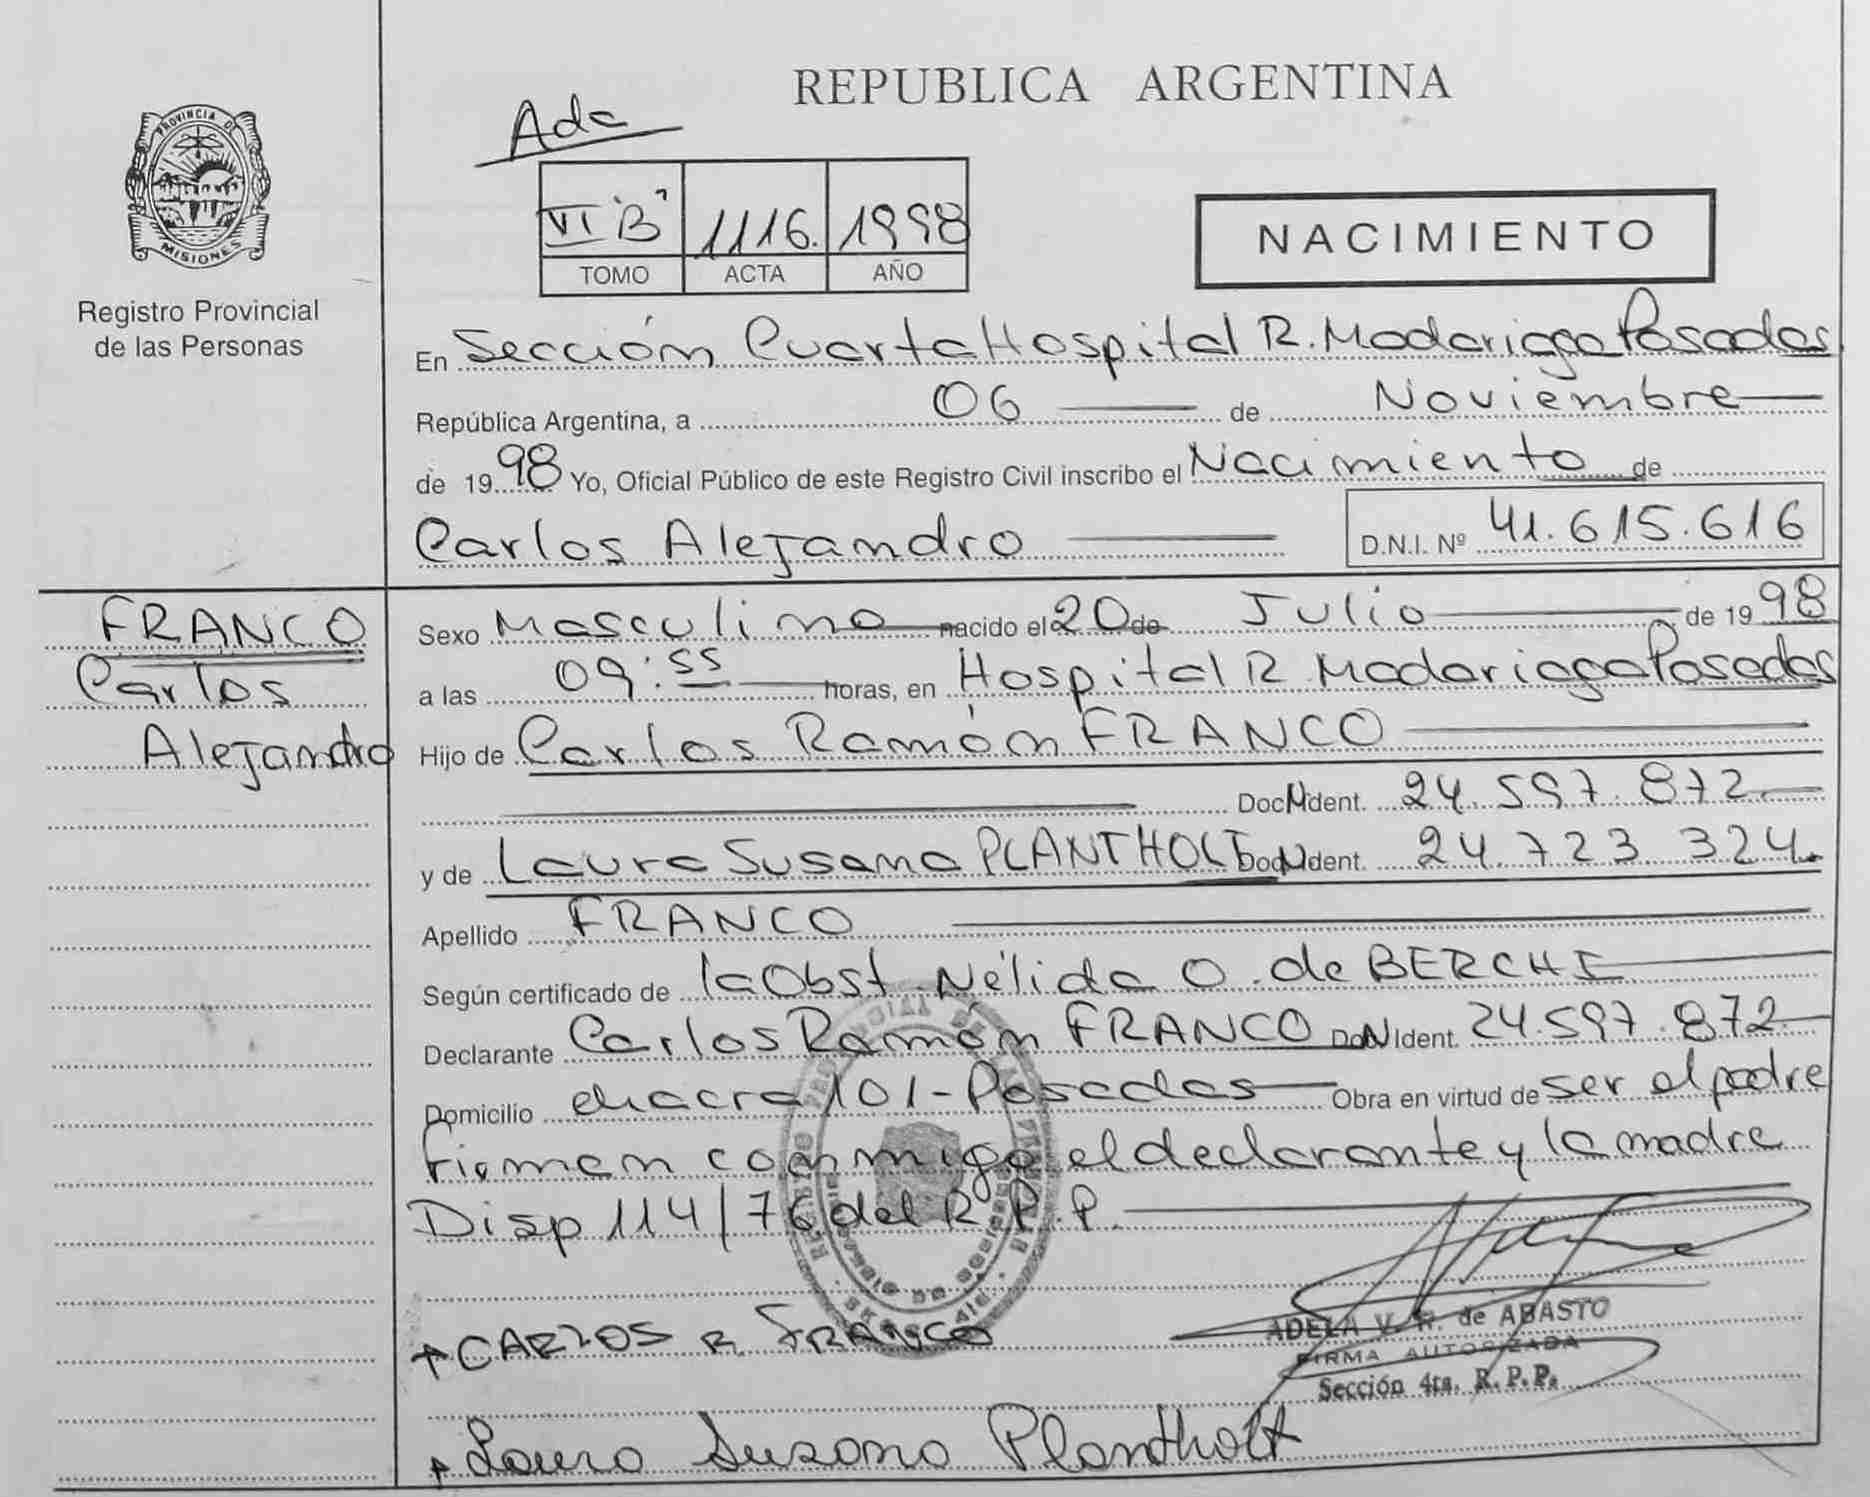 REPUBLICA ARGENTINA
PROVINCIA DE
MISIONES
Registro Provincial
de las Personas
Ada
VI "B" 1116. 1998
TOMO ACTA AÑO
NACIMIENTO
En Sección Cuarta Hospital R. Madariaga Posadas
República Argentina, a 06 de Noviembre
de 1998 Yo, Oficial Público de este Registro Civil inscribo el Nacimiento de
Carlos Alejandro D.N.I. Nº 41.615.616
FRANCO
Carlos
Alejandro
Sexo Masculino nacido el 20 de Julio de 1998
a las 09:55 horas, en Hospital R Madariaga Posadas
Hijo de Carlos Ramón FRANCO
Doc N Ident. 24.597.872
y de Laura Susana PLANTHOLT Doc N Ident. 24.723.324.
Apellido FRANCO
Según certificado de la Obst Nélida O. de BERCHI
Declarante Carlos Ramón FRANCO Doc N Ident. 24.597.872
Domicilio chacra 101-Posadas Obra en virtud de ser el padre
Firman conmigo el declarante y la madre
Disp 114/76 del R.P.P.
CARLOS R. FRANCO
ADELA V. R. de ABASTO
FIRMA AUTORIZADA
Sección 4ta. R.P.P.
Laura Susana Plantholt